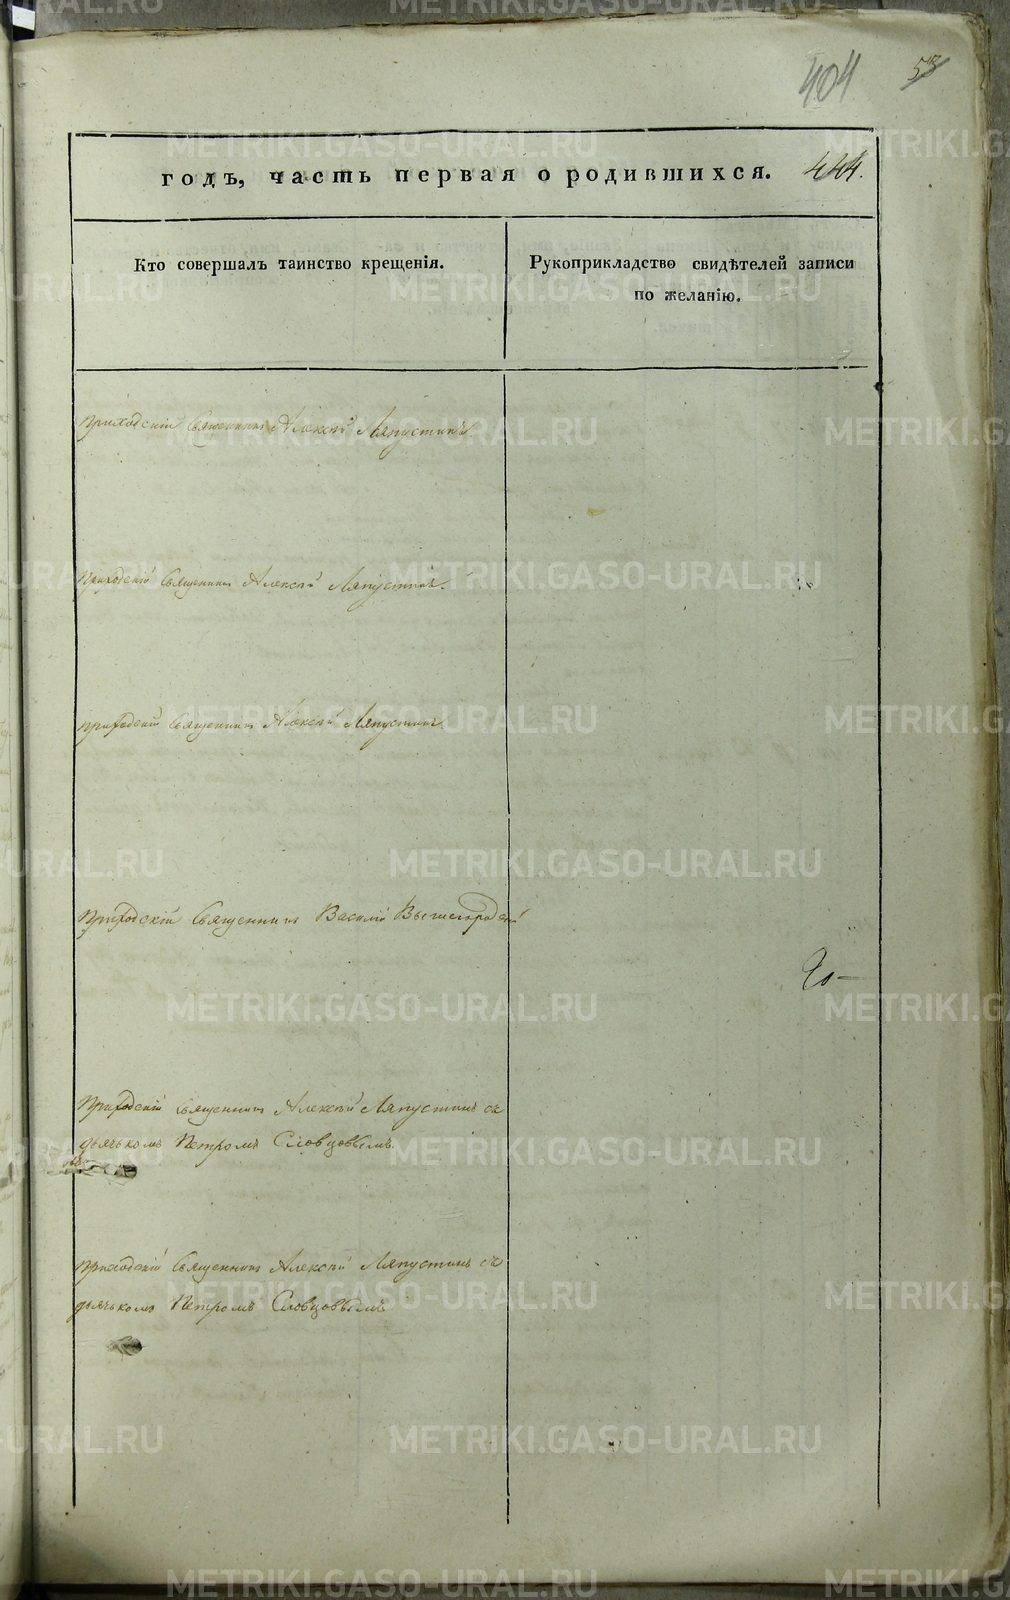 404
53
годъ, часть первая о родившихся.
444.
Кто совершалъ таинство крещенія.
Рукоприкладство свидѣтелей записи
по желанію.
Приходскій Священникъ Алексѣй Ляпустинъ
Приходскій Священникъ Алексѣй Ляпустинъ.
Приходскій Священникъ Алексѣй Ляпустинъ.
Приходскій Священникъ Василій Вышегородскій
Приходскій Священникъ Алексѣй Ляпустинъ съ
дьячькомъ Петромъ Словцовымъ.
Приходскій Священникъ Алексѣй Ляпустинъ съ
дьячькомъ Петромъ Словцовымъ
METRIKI.GASO-URAL.RU